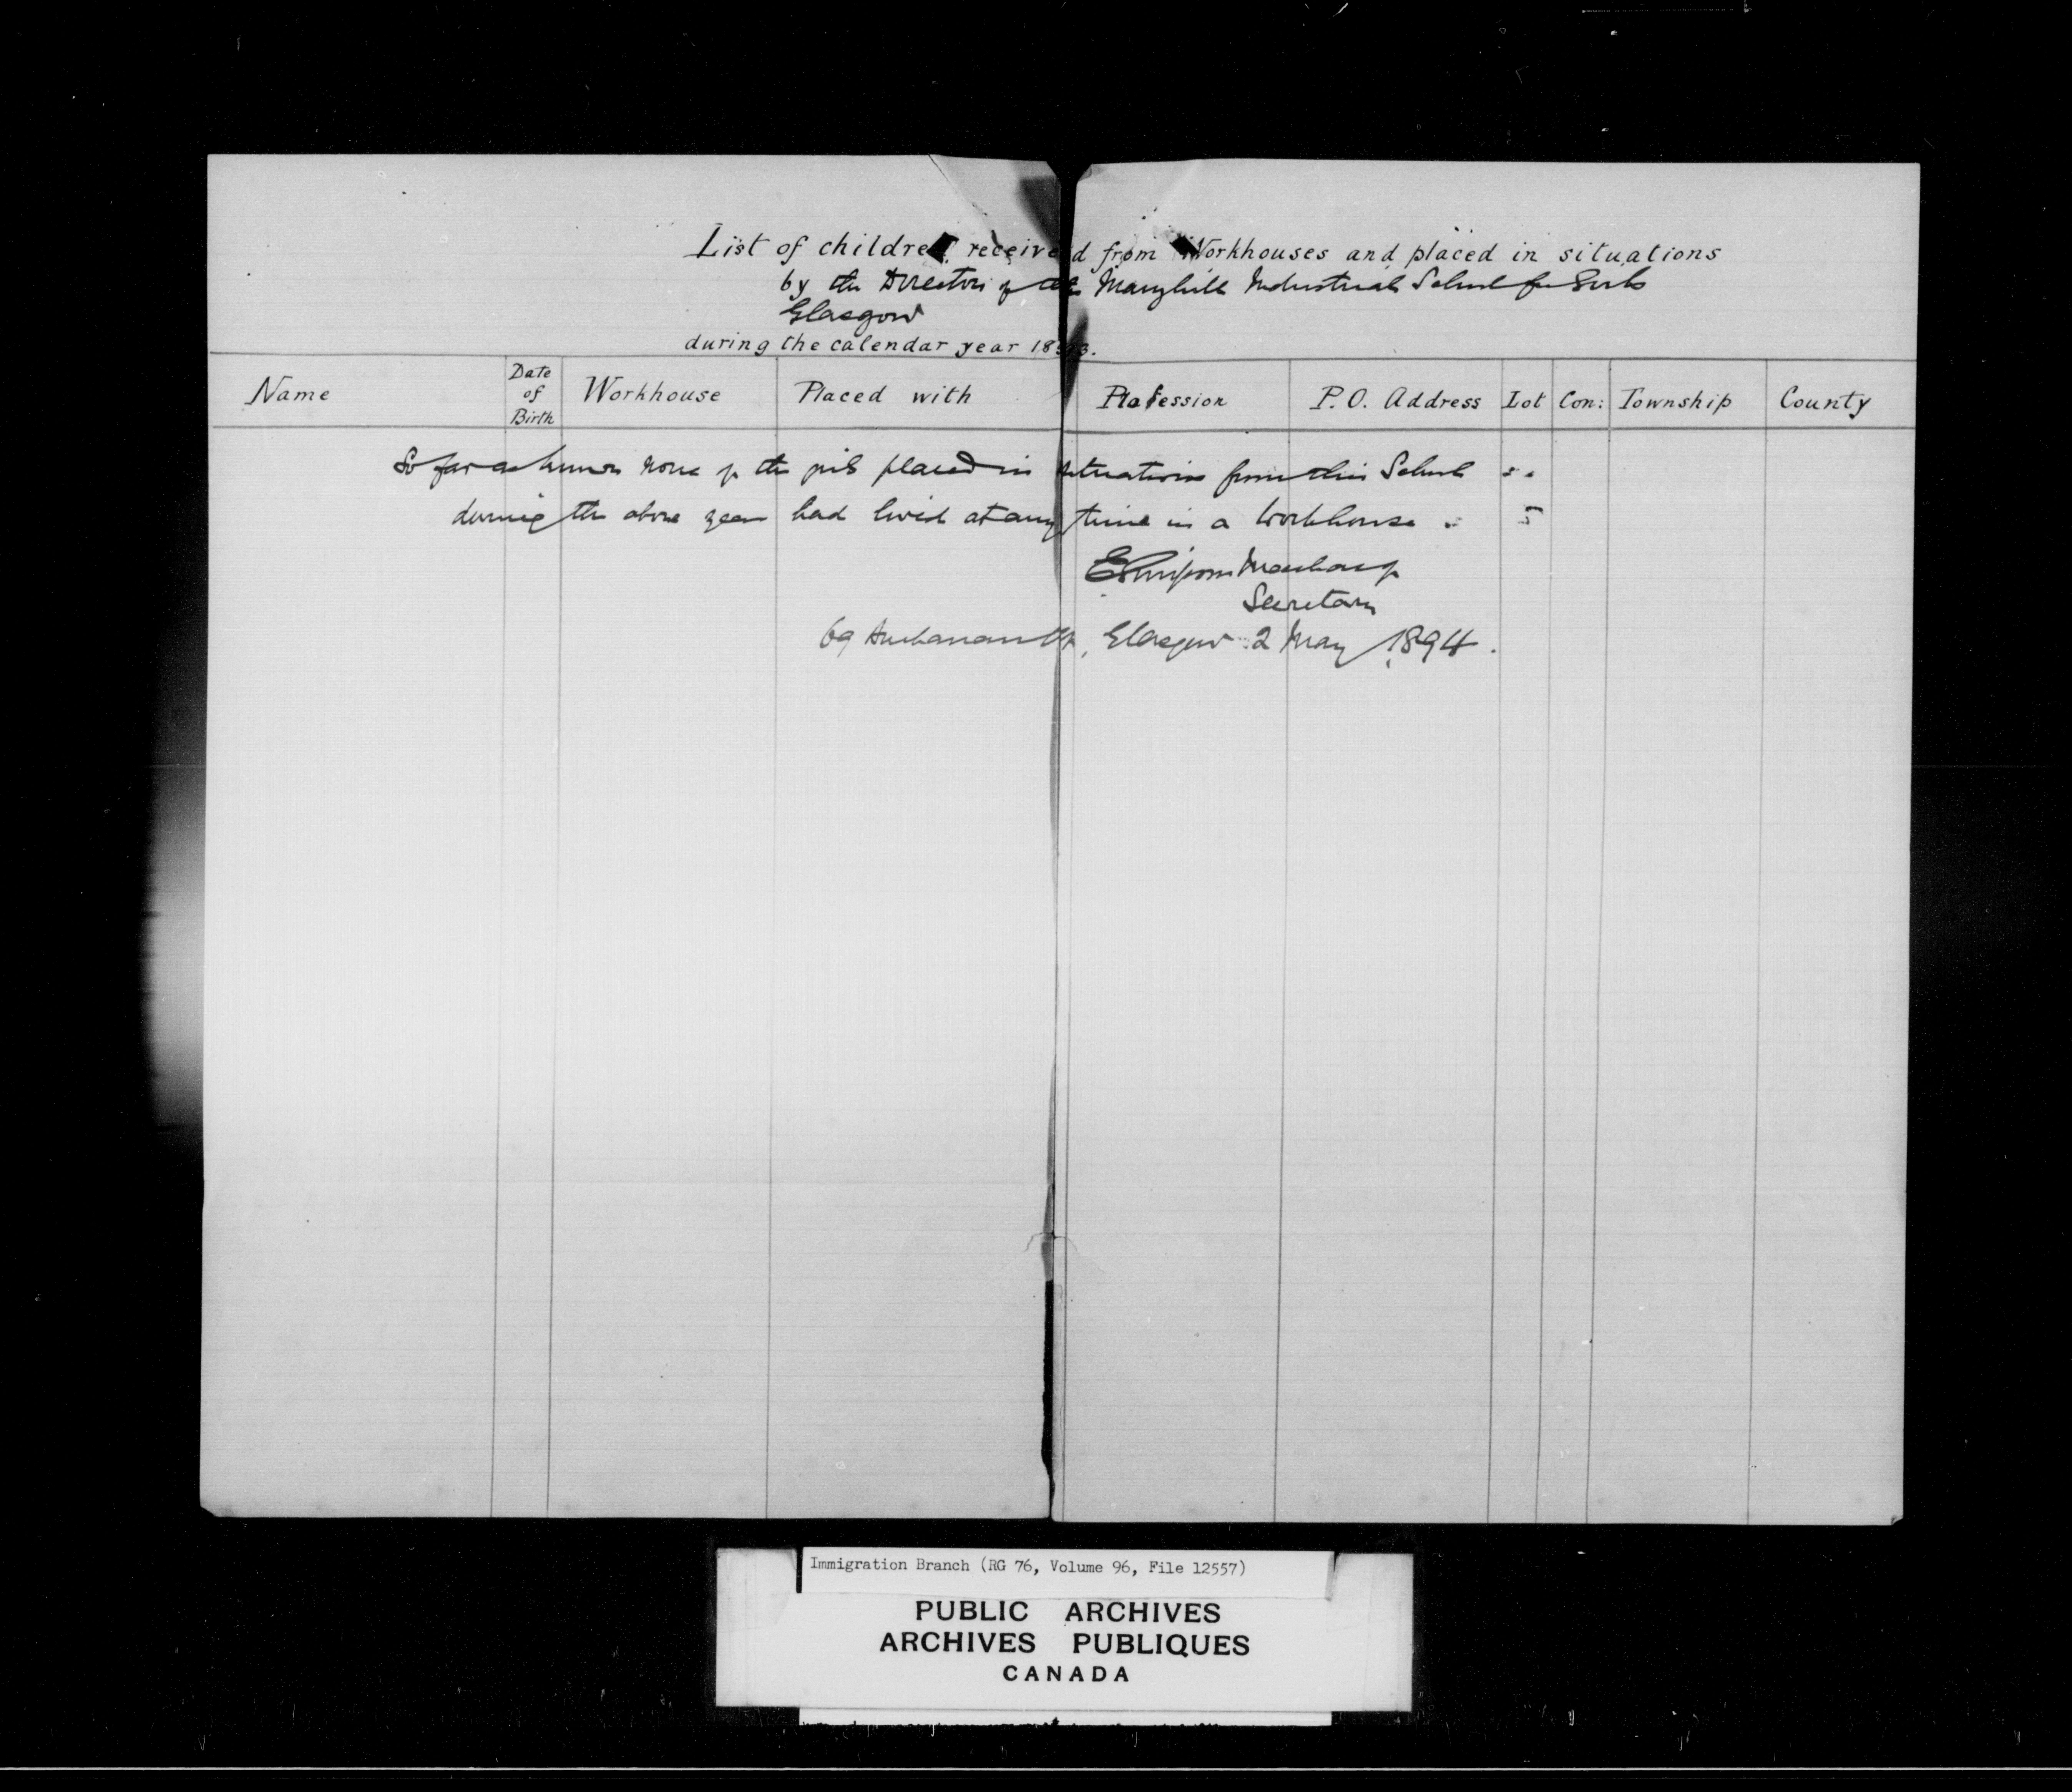 List of children received from Workhouses and placed in situations
by the Directors of the Maryhill Industrial School for Girls
Glasgow
during the calendar year 1893.
Name Date of Birth Workhouse Placed with Profession P.O. Address Lot Con: Township County
So far as known none of the girls placed in situations from this School
during the above year had lived at any time in a Workhouse.
Secretary
69 Buchanan St, Glasgow 2 May 1894.
Immigration Branch (RG 76, Volume 96, File 12557)
PUBLIC ARCHIVES
ARCHIVES PUBLIQUES
CANADA